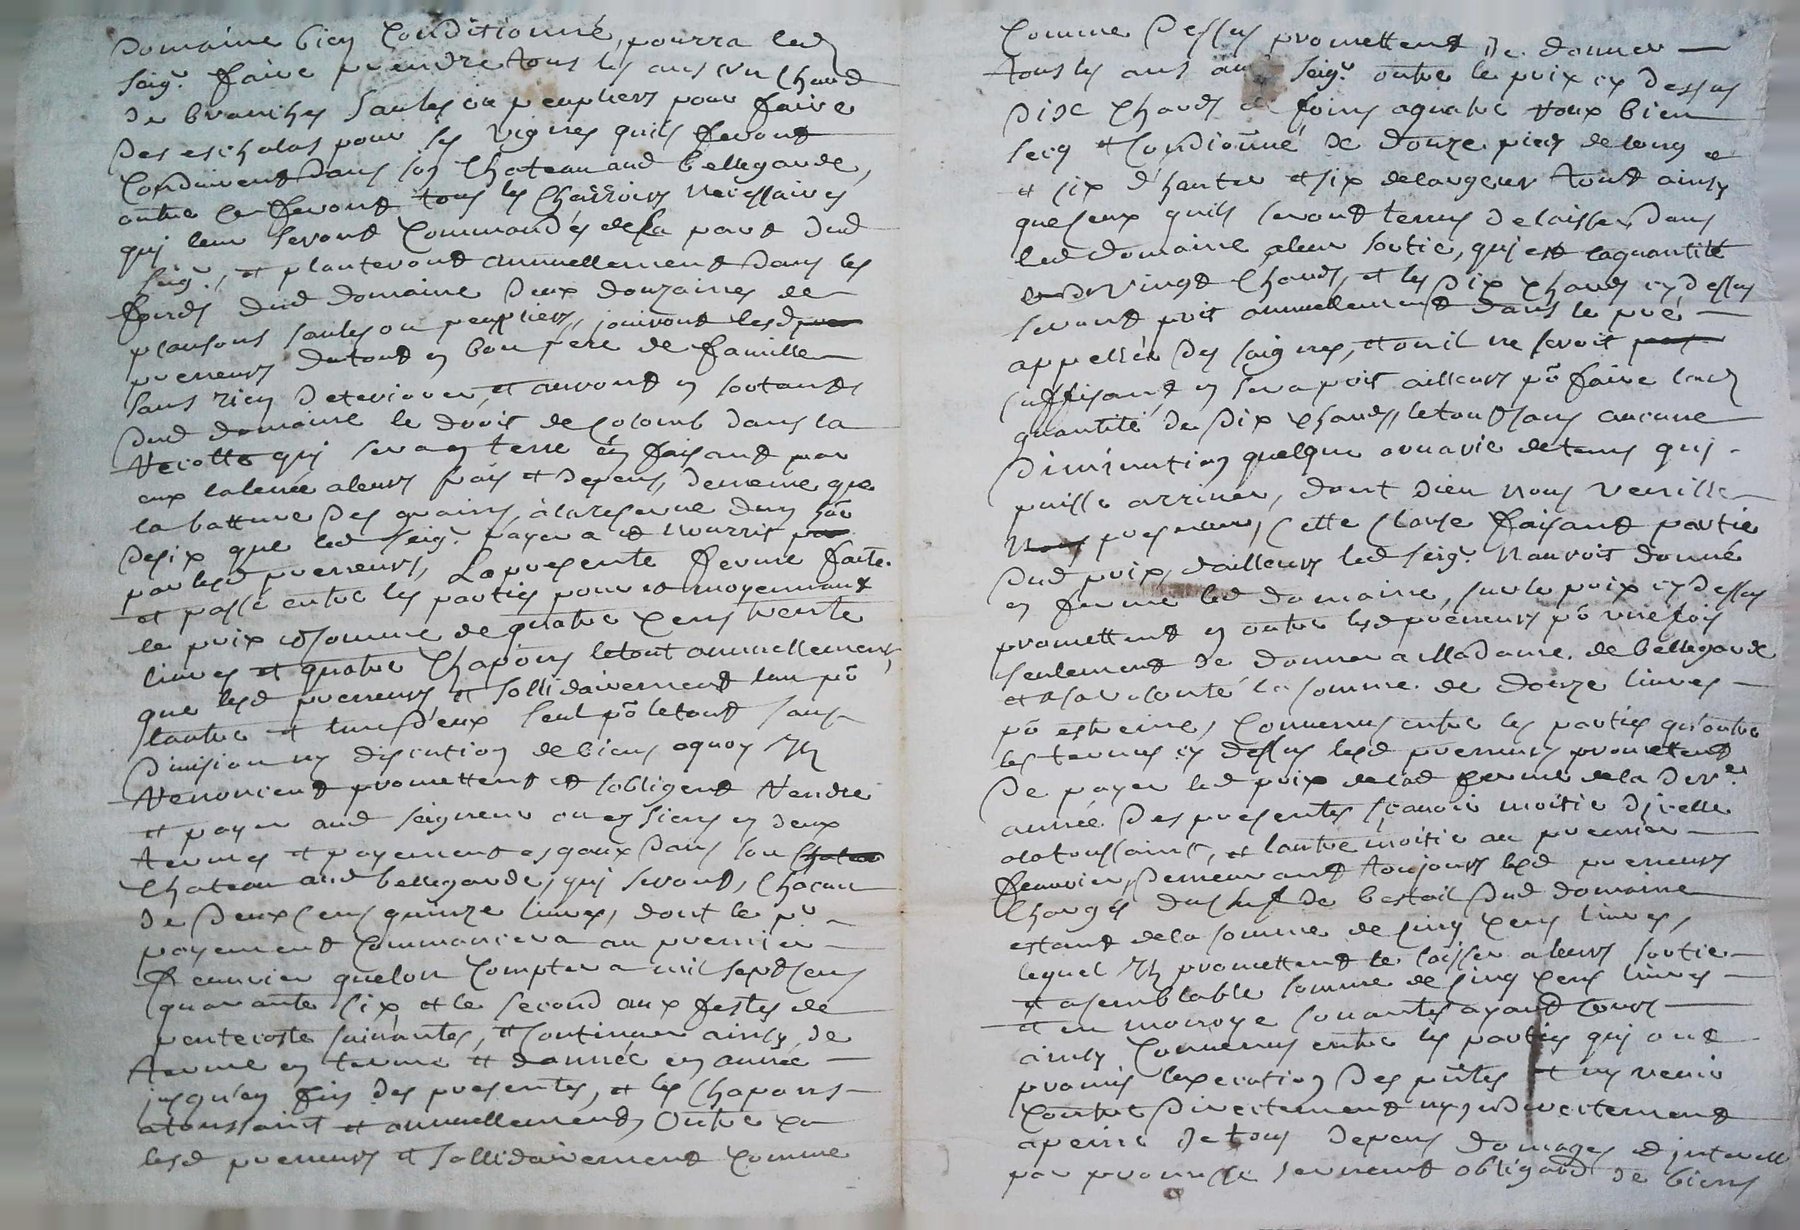 Domaine bien Conditionné, pourra led
seigr. faire prendre tous les ans un Chard
de branches saules ou peupliers pour faire
des eschalas pour les vignes quils feront
Conduire dans son Chateau aud bellegarde,
outre ce feront tous les Charrois necessaires
qui leur seront Commandés de la part dud
seigr., et planteront annuellement dans les
fonds dud domaine deux douzaines de
plansons saules ou peupliers, jouiront lesd
preneurs du tout en bon pere de famille
sans rien deteriorer, et auront en sortants
dud domaine le droit de Colomb dans la
recolte qui sera en terre en faisant par
eux la levée a leurs frais et depens, de meme que
la batture des grains, a la reserve dun
de six que led seigr. payera et nourris
par lesd preneurs, La presente ferme faite
et passé entre les parties pour et moyennant
le prix et somme de quatre Cens trente
livres et quatre Chapons le tout annuellement,
que lesd preneurs et sollidairement lun pō
lautre et lun deux seul pō le tout sans
division ny discution de biens aquoy Ils
renoncent promettent et sobligent rendre
et payer aud seigneur ou es siens en deux
termes et payements esgaux dans son
Chateau aud bellegarde, qui seront, Chacun
de deux Cens quinze livres, dont le pr
payement Commancera au premier
Feuvrier quelon Comptera mil sept Cens
quarante six et le second aux festes de
pentecoste suivantes, et Continuer ainsy de
terme en terme et dannée en année
jusqu'en fin des presentes, et les Chapons
atoussaint et annuellement, Outre ce
lesd preneurs et sollidairement Comme
Comme dessus promettent De donner
tous les ans aud seigr. outre le prix cy dessus
dix Chards de foins a quatre roux bien
secq et Condionné de douze pieds de long
et six d'hauteur et six de largeur tout ainsy
que ceux quils seront tenus de laisser dans
led domaine a leur sortie, qui est la quantité
de vingt Chards, et les dix Chards cy dessus
seront pris annuellement dans le pré
appellée des saignes, et ou il ne seroit
suffisant en sera pris ailleurs pō faire lad
quantité de dix Chards, le tout sans aucune
diminution quelque ovarie de tems qui
puisse arriver, dont dieu nous veuille
preserver, Cette Clause faisant partie
dud prix, dailleurs led seigr. nauroit donné
en ferme led domaine, sur le prix cy dessus
promettent en outre lesd preneurs pō une fois
seulement de donner a Madame de bellegarde
et a sa volonté la somme de douze livres
pō estreine, Convenus entre les parties qu'outre
les termes cy dessus lesd preneurs promettent
De payer led prix de lad ferme de la derer.
année des presentes sçavoir moitie dicelle
alatoussaint, et lautre moitie au premier
feuvrier, Demeurant toujours lesd preneurs
Charges du de bestail dud domaine
estant de la somme de cinq Cens livres,
lequel Ils promettent de laisser a leurs sortie
et a semblable somme de cinq Cens livres
et en monoye sonantes ayant cours
ainsy Convenus entre les parties qui ont
promis lexecution des pntes et ny venir
Contre Directement ny indirectement
a peine de tous depens domages et interests
par promesse serment obligāon de biens